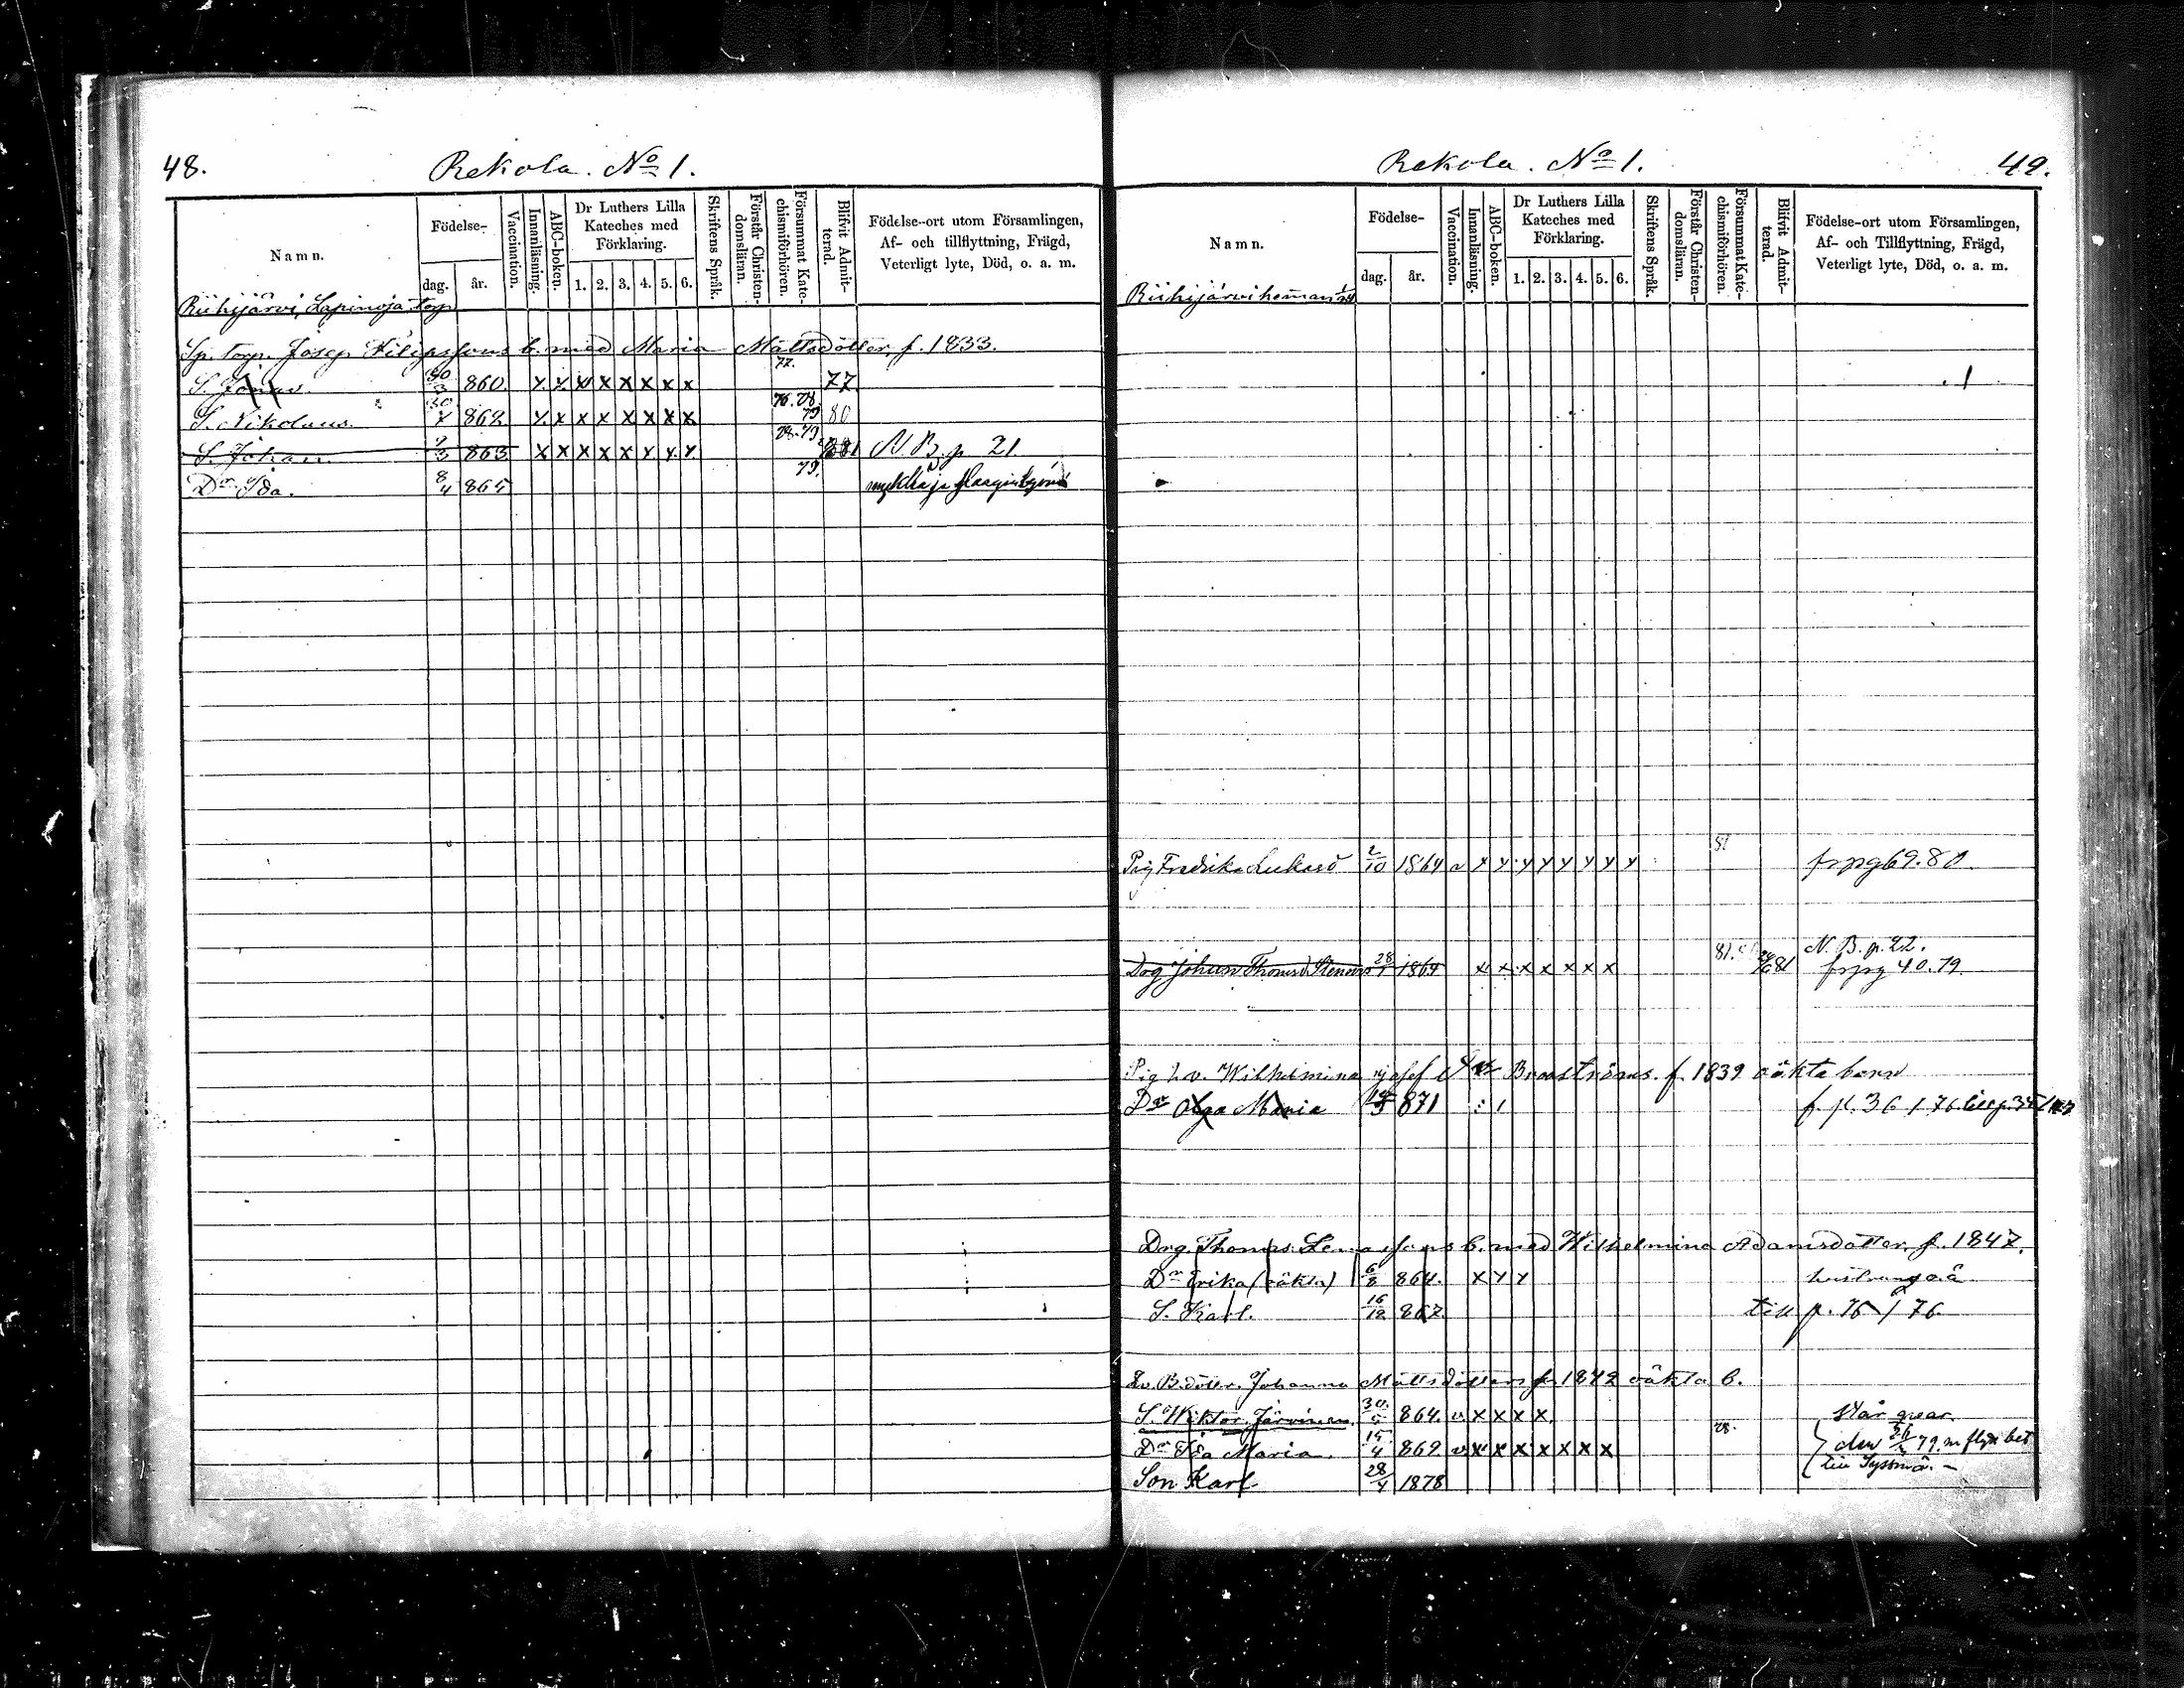 48.
Rekola. No 1.
Namn.
Födelse-
dag.
år.
Vaccination.
Innanläsning.
ABC-boken.
Dr Luthers Lilla
Kateches med
Förklaring.
1. 2. 3. 4. 5. 6.
Skriftens Språk.
Förstår Christen-
domsläran.
Försummat Kate-
chismiförhören.
Blifvit Admit-
terad.
Födelse-ort utom Församlingen,
Af- och tillflyttning, Frägd,
Veterligt lyte, Död, o. a. m.
Riihijärvi, Lapinoja torp
Sp. torp. Josep Filipssons b. med Maria Mattsdotter, f. 1833.
S. Jonas 30/3 860. x x x x x x x x 77. 77
S. Nikolaus 30/7 862 x x x x x x x x 76. 78 79 80
S. Johan 863 x x x x x x x x 78. 79 81 N. B. p. 21
Dr Ida. 8/4 865 79.
49.
Rekola. No 1.
Namn.
Födelse-
dag.
år.
Vaccination.
Innanläsning.
ABC-boken.
Dr Luthers Lilla
Kateches med
Förklaring.
1. 2. 3. 4. 5. 6.
Skriftens Språk.
Förstår Christen-
domsläran.
Försummat Kate-
chismiförhören.
Blifvit Admit-
terad.
Födelse-ort utom Församlingen,
Af- och Tillflyttning, Frägd,
Veterligt lyte, Död, o. a. m.
Riihijärvi heman
Pig Fredrika Lukasd 2/10 1864 v x x x x x x x x 81 fr pg 69. 80.
Drg Johan Thomas 28/1 1864 x x x x x x x 81. 81 N. B. p. 22.
fr pg 40. 79.
Pig l. v. Wilhelmina Broströms f. 1839 oäkta barn
Dr Olga Maria 871 f. p. 36 / 76.
Drg. Thomas b. med Wilhelmina Adamsdotter, f. 1847.
Dr Erika (oäkta) 6/8 864. x x x
S. Karl. 16/12 867. till p. 76 / 76
Johanna Mattsdotters f. 1842 oäkta b.
S. Wiktor Järvinen 30/5 864. v x x x x står qvar.
Dr Ida Maria. 15/4 869 v x x x x x x x 78. den 26/ 79. m flytt bet
Son Karl 28/4 1878 till Sysmä. -